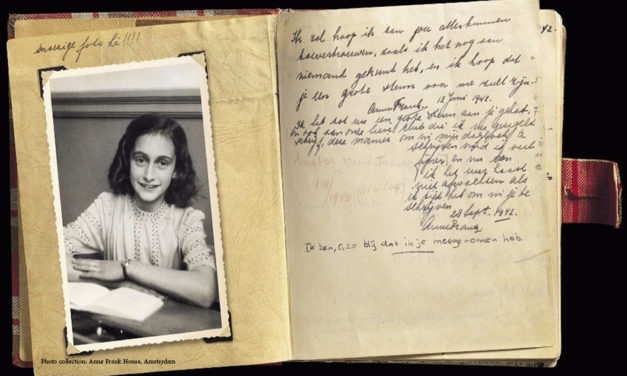 foto hè!!!!
Photo collection: Anne Frank House, Amsterdam
42.
Ik zal hoop ik aan jou alles kunnen
toevertrouwen, zoals ik het nog aan
niemand gekund heb, en ik hoop dat
je een grote steun voor me zult zijn.
Anne Frank. 12 Juni 1942.
Ik heb tot nu een grote steun aan je gehad,
en ook aan onze lieve club die ik nu geregeld
schrijf, deze manier om in mijn dagboek te
schrijven vind ik veel
fijner en nu kan
ik het uur haast
niet afwachten als
ik tijd heb om in je te
schrijven
28 Sept. 1942.
Anne Frank.
Ik ben, o, zo blij dat ik je meegenomen heb